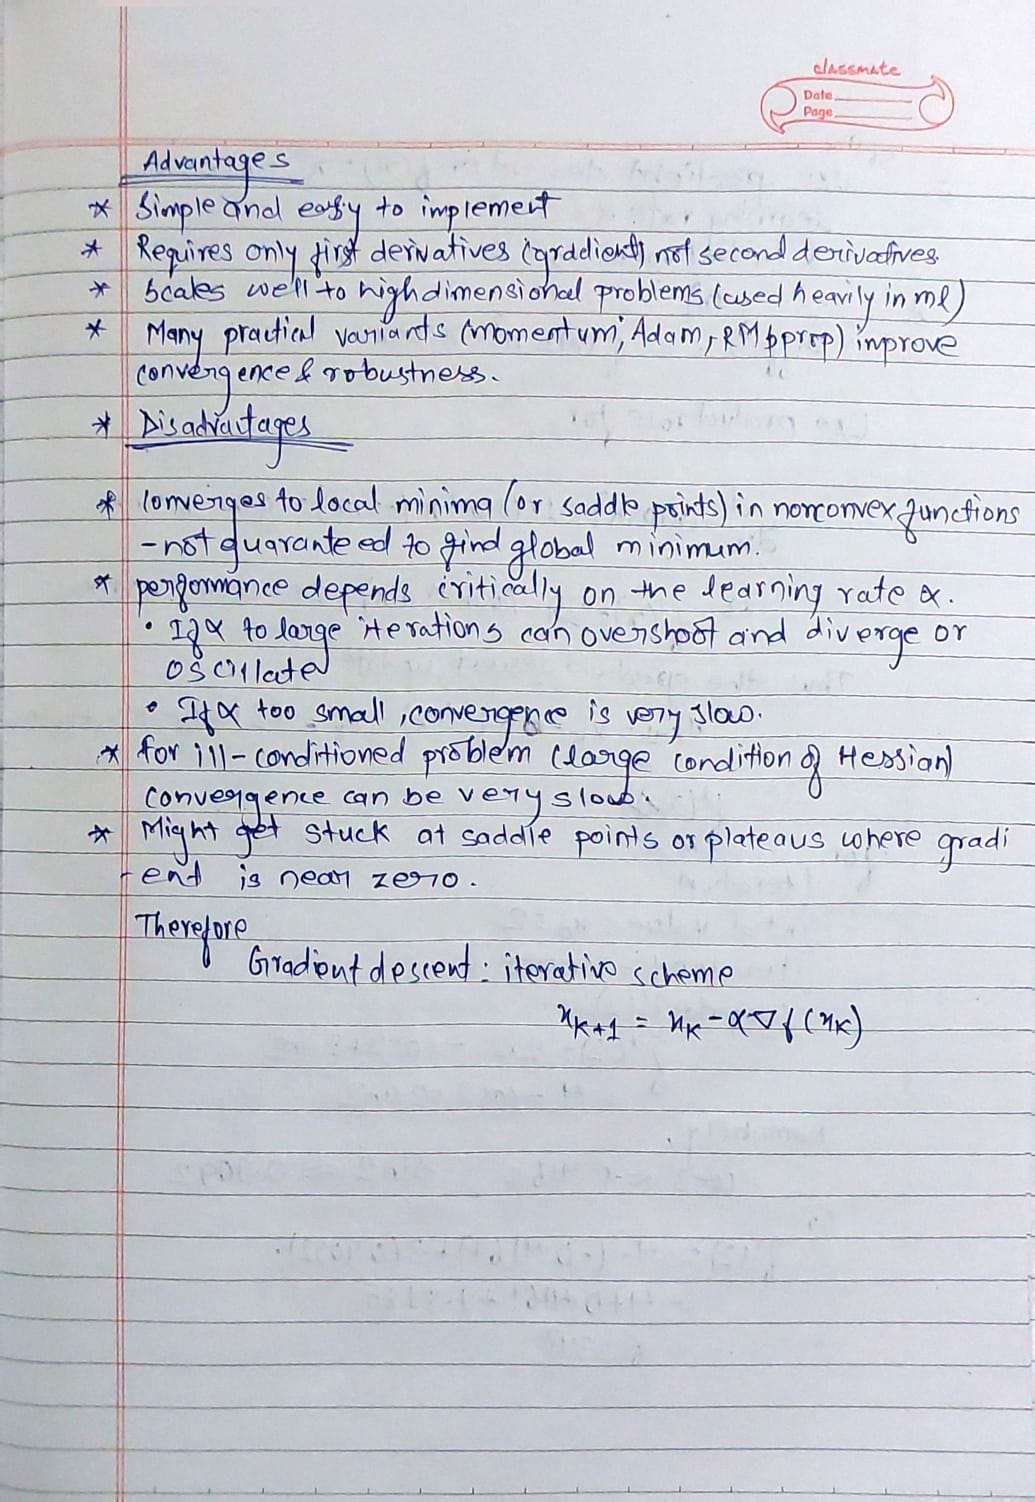 classmate
Date
Page
Advantages
* Simple and easy to implement
* Requires only first derivatives (graddient) not second derivatives.
* Scales well to high dimensional problems (used heavily in ml)
* Many practical variants (momentum, Adam, RMpprop) improve
convergence & robustness.
* Disadvantages
* Converges to local minima (or saddle points) in nonconvex functions
- not guaranteed to find global minimum.
* performance depends critically on the learning rate α.
• If α to large iterations can overshoot and diverge or
oscillate
• If α too small, convergence is very slow.
* for ill-conditioned problem (large condition of Hessian)
convergence can be very slow.
* Might get stuck at saddle points or plateaus where gradi
- end is near zero.
Therefore
Gradient descent : iterative scheme
x_{K+1} = x_K - α∇f(x_K)